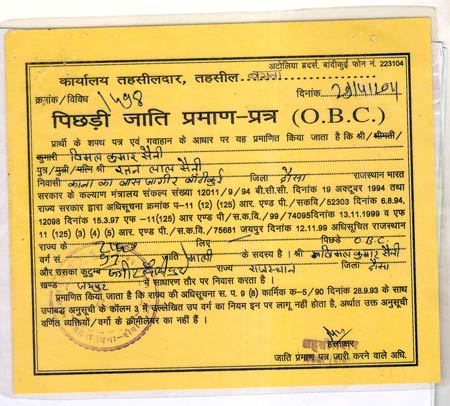 अटोलिया ब्रदर्स, बांदीकुई फोन नं. 223104
कार्यालय तहसीलदार, तहसील
क्रमांक/विविध 1598 दिनांक
पिछड़ी जाति प्रमाण-प्रत्र (O.B.C.)
प्रार्थी के शपथ पत्र एवं गवाहान के आधार पर यह प्रमाणित किया जाता है कि श्री/श्रीमती/
कुमारी विमल कुमार सैनी
पुत्र/पुत्री/पत्नि श्री रतन लाल सैनी
निवासी जिला दौसा राजस्थान भारत
सरकार के कल्याण मंत्रालय संकल्प संख्या 12011/9/94 बी.सी.सी. दिनांक 19 अक्टूबर 1994 तथा
राज्य सरकार द्वारा अधिसूचना क्रमांक प-11 (12) (125) आर एण्ड पी/सकवि/52303 दिनांक 6.8.94,
12098 दिनांक 15.3.97 एफ -11(125) आर एण्ड पी/स.क.वि./99/74095दिनांक 13.11.1999 व एफ
11 (125) (3) (4) (5) आर एण्ड पी/स.क.वि./75681 जयपुर दिनांक 12.11.99 अधिसूचित राजस्थान
राज्य के लिए पिछडे O.B.C.
वर्ग सं. जाति माली के सदस्य है । श्री विमल कुमार सैनी
और उसका कुटुम्ब राज्य राजस्थान जिला दौसा
खण्ड जयपुर में साधारण तौर पर निवास करता है ।
प्रमाणित किया जाता है कि राज्य की अधिसूचना स. प. 9 (8) कार्मिक क-5/90 दिनांक 28.9.93 के साथ
उपाबद्ध अनुसूची के कॉलम 3 में उल्लेखित उप वर्ग का नियम इन पर लागू नहीं होता है, अर्थात उक्त अनुसूची
वर्णित व्यक्तियों/वर्गों के क्रीमीलेयर का नहीं हैं ।
हस्ताक्षर
जाति प्रमाण पत्र जारी करने वाले अधि.